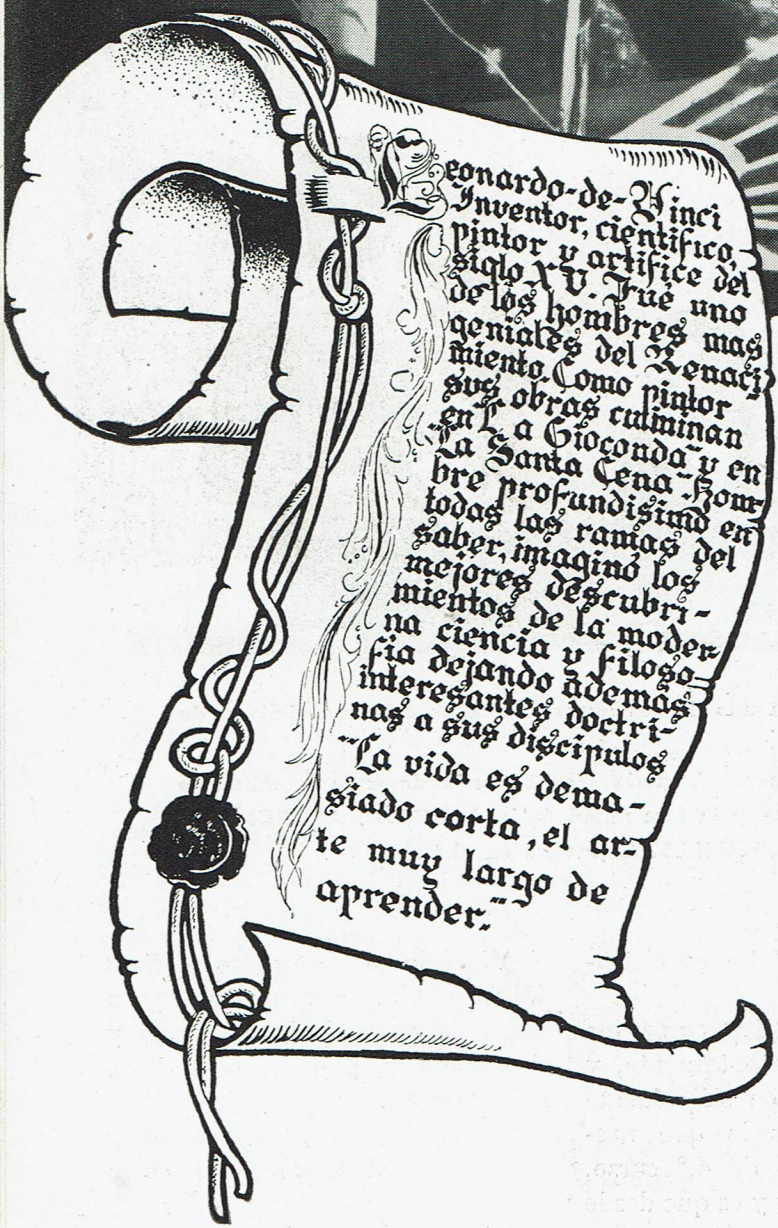 Leonardo-de-Vinci
Inventor, cientifico,
pintor y artifice del
siglo XV. Fué uno
de los hombres mas
geniales del Renaci
miento. Como pintor
sus obras culminan
en "La Gioconda" y en
"La Santa Cena". Hom-
bre profundisimo en
todas las ramas del
saber, imaginó los
mejores descubri-
mientos de la moder-
na ciencia y filoso-
fia dejando además
interesantes doctri-
nas a sus discipulos
"La vida es dema-
siado corta, el ar-
te muy largo de
aprender."